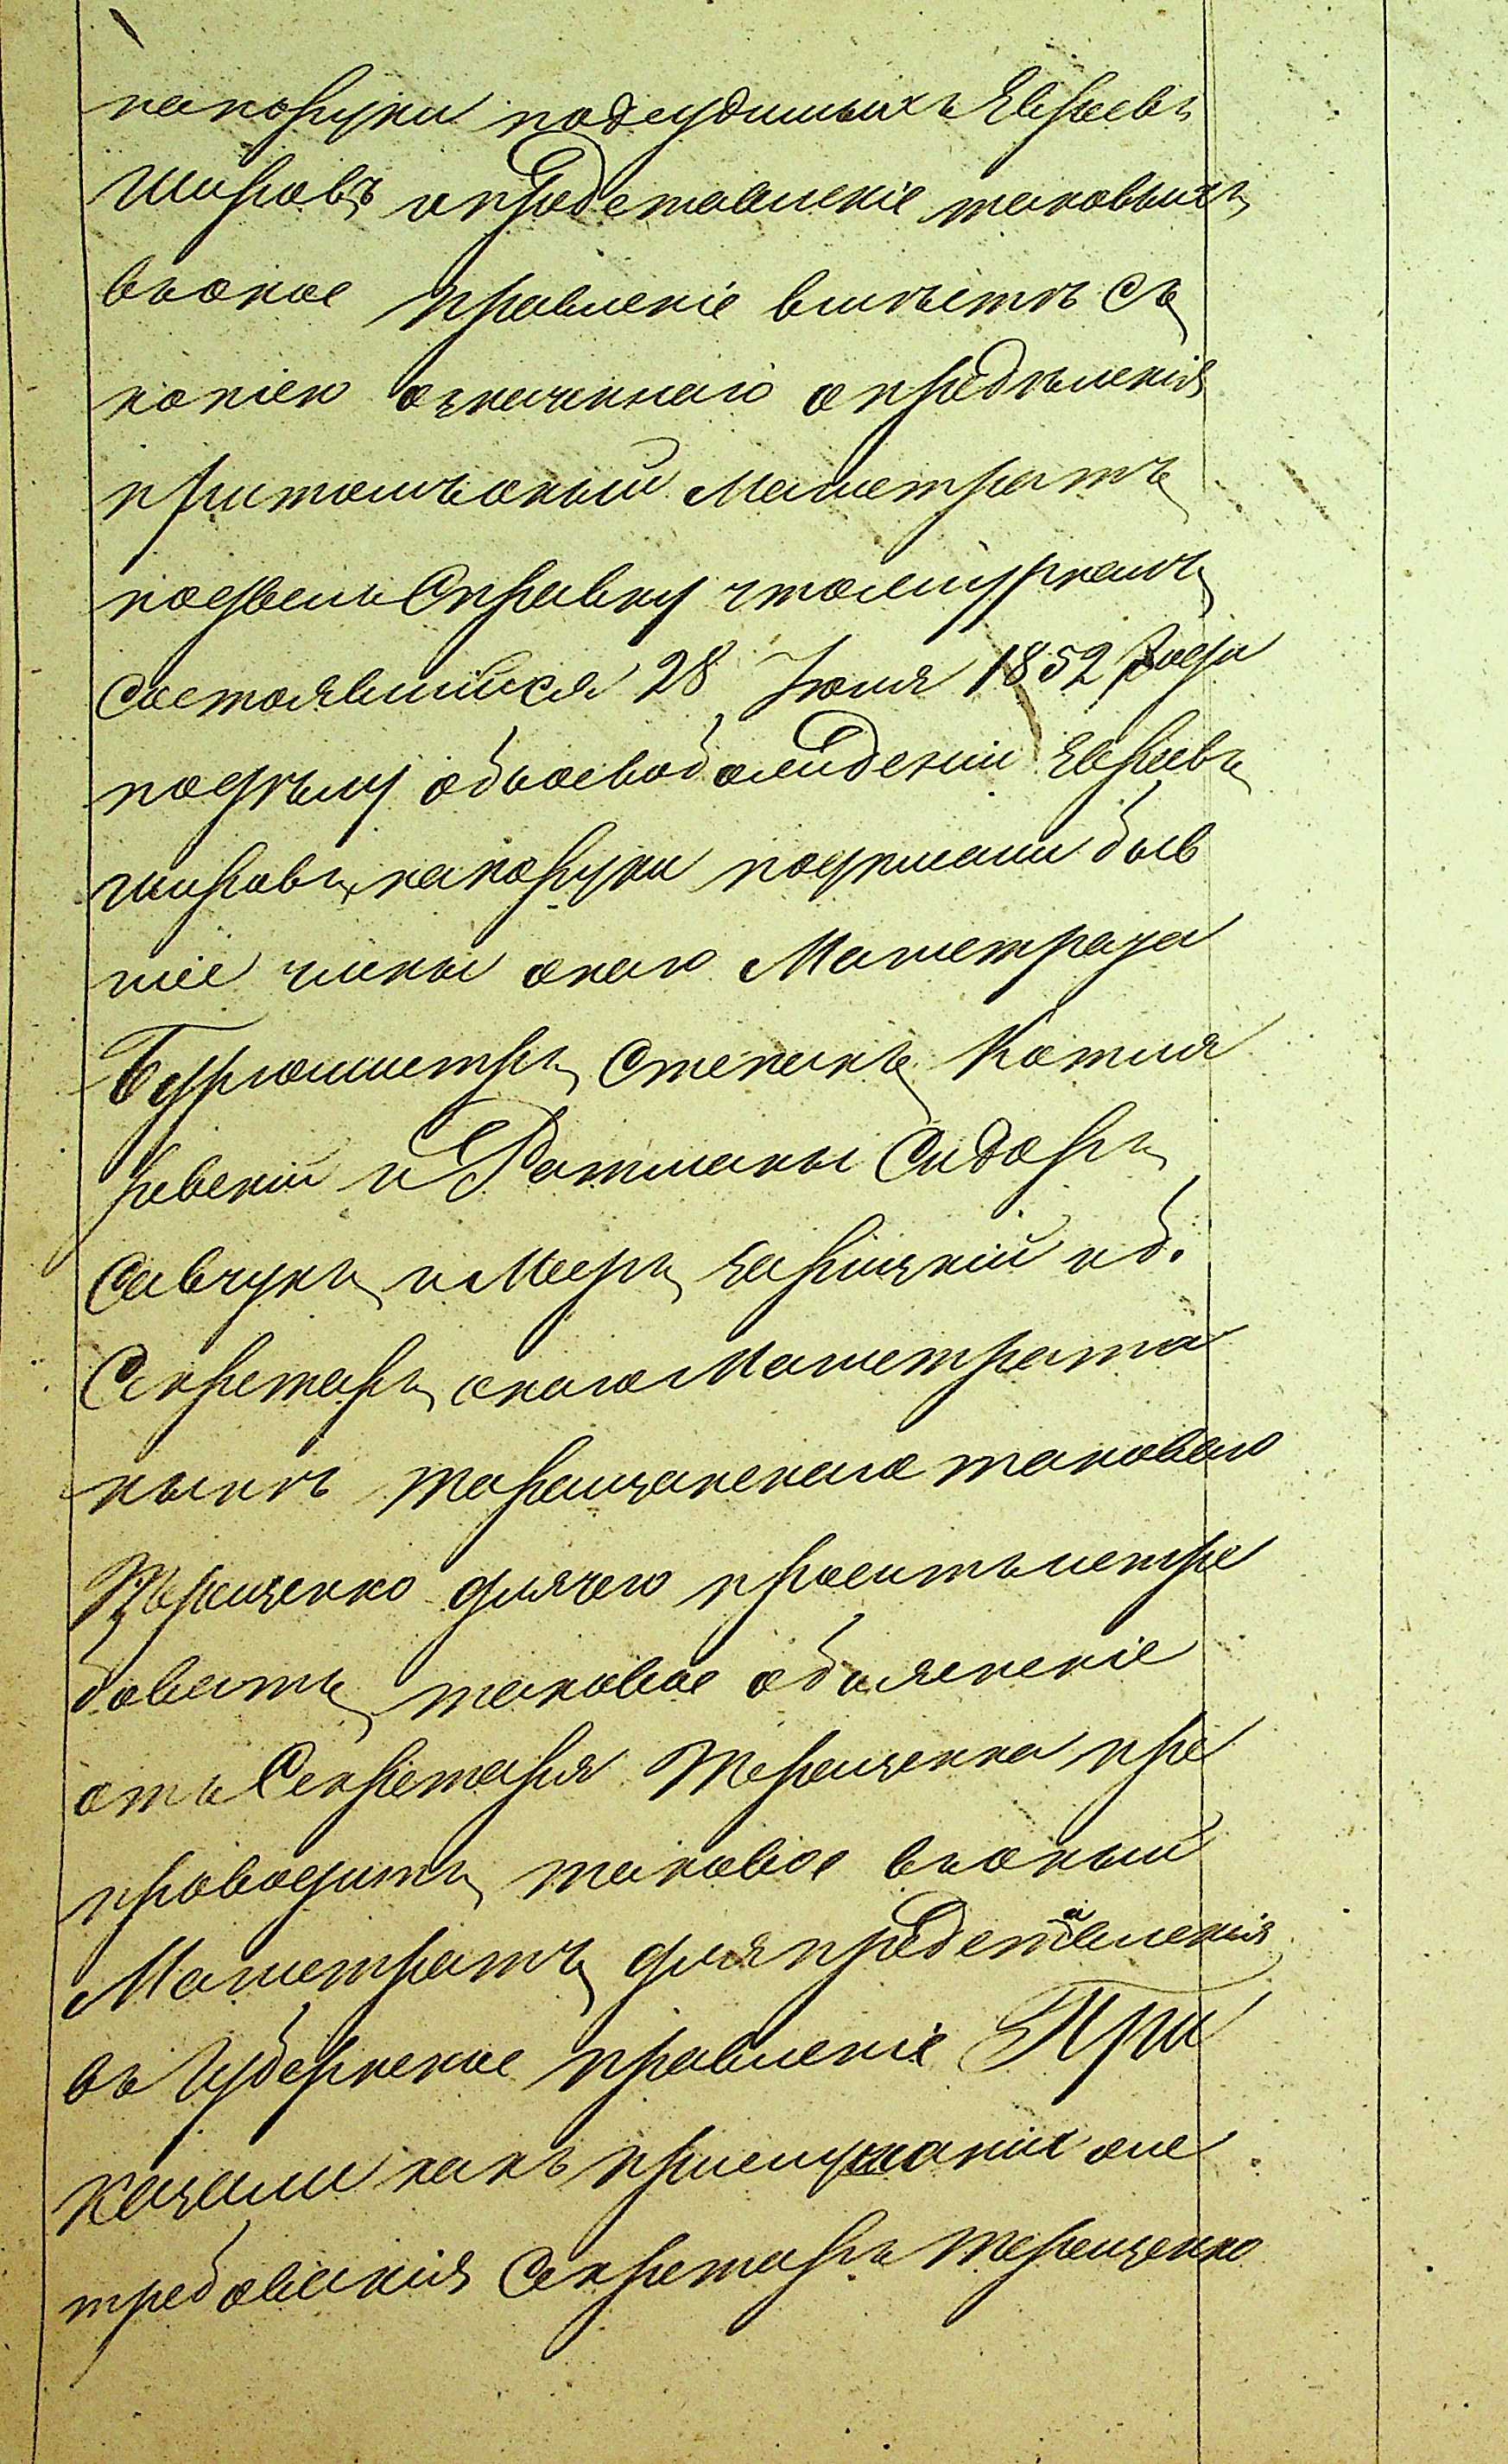 напоруки подсудимыхъ Евреевъ
Шировъ опредставленіе таковыхъ
въоное правленіе вмѣстѣ съ
копіею означеннаго опредѣленія
притомъ оный Магистратъ
подвелъ Справку что журналъ
состоявшійся 28 Іюля 1852 Года
подѣлу объосвобожденіи Евреевъ
Шировъ напоруки подписали быв
шіе члены онаго Магистрата
Бургомистръ Степанъ Котля
ревскій и Ратманы Сидоръ
Савчукъ и Меер Зарицкій и б.
Секретарь онаго Магистрата
нынѣ Таращанскаго таковаго
Терещенко длячего проситъ истре
бовать таковое объясненіе
отъ Секретаря Терещенка пре
проводить таковое въоный
Магистратъ для представленія
въ Губернское правленіе При
казали какъ приемуканіи оне
требованія Секретарь Терещенко